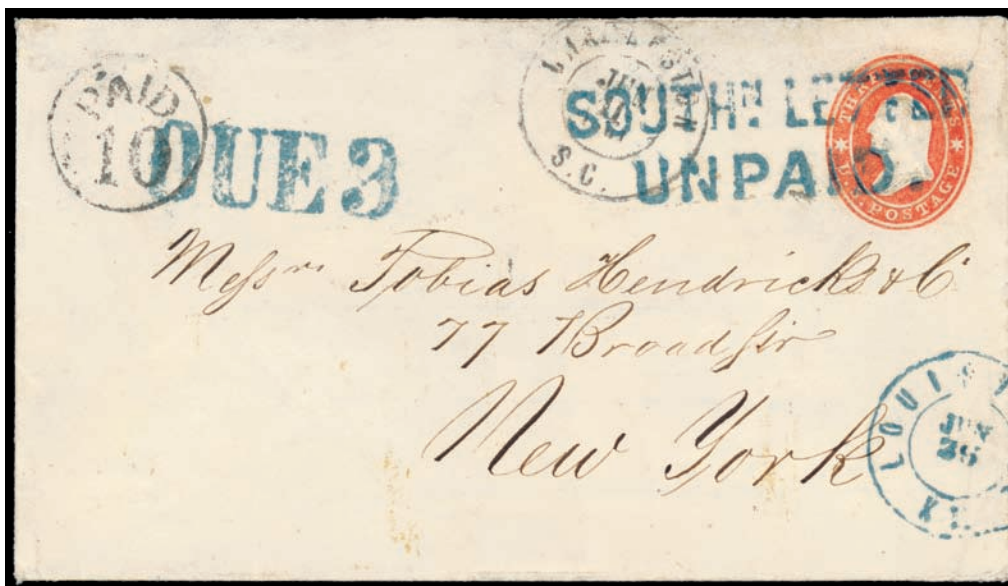 PAID
10
DUE 3
CHARLESTON
JUN
S.C.
SOUTHN. LETTER
UNPAID.
THREE CENTS
U.S. POSTAGE
Messrs Tobias Hendricks & Co
77 Broad Str
New York
LOUIS
JUN
KY.